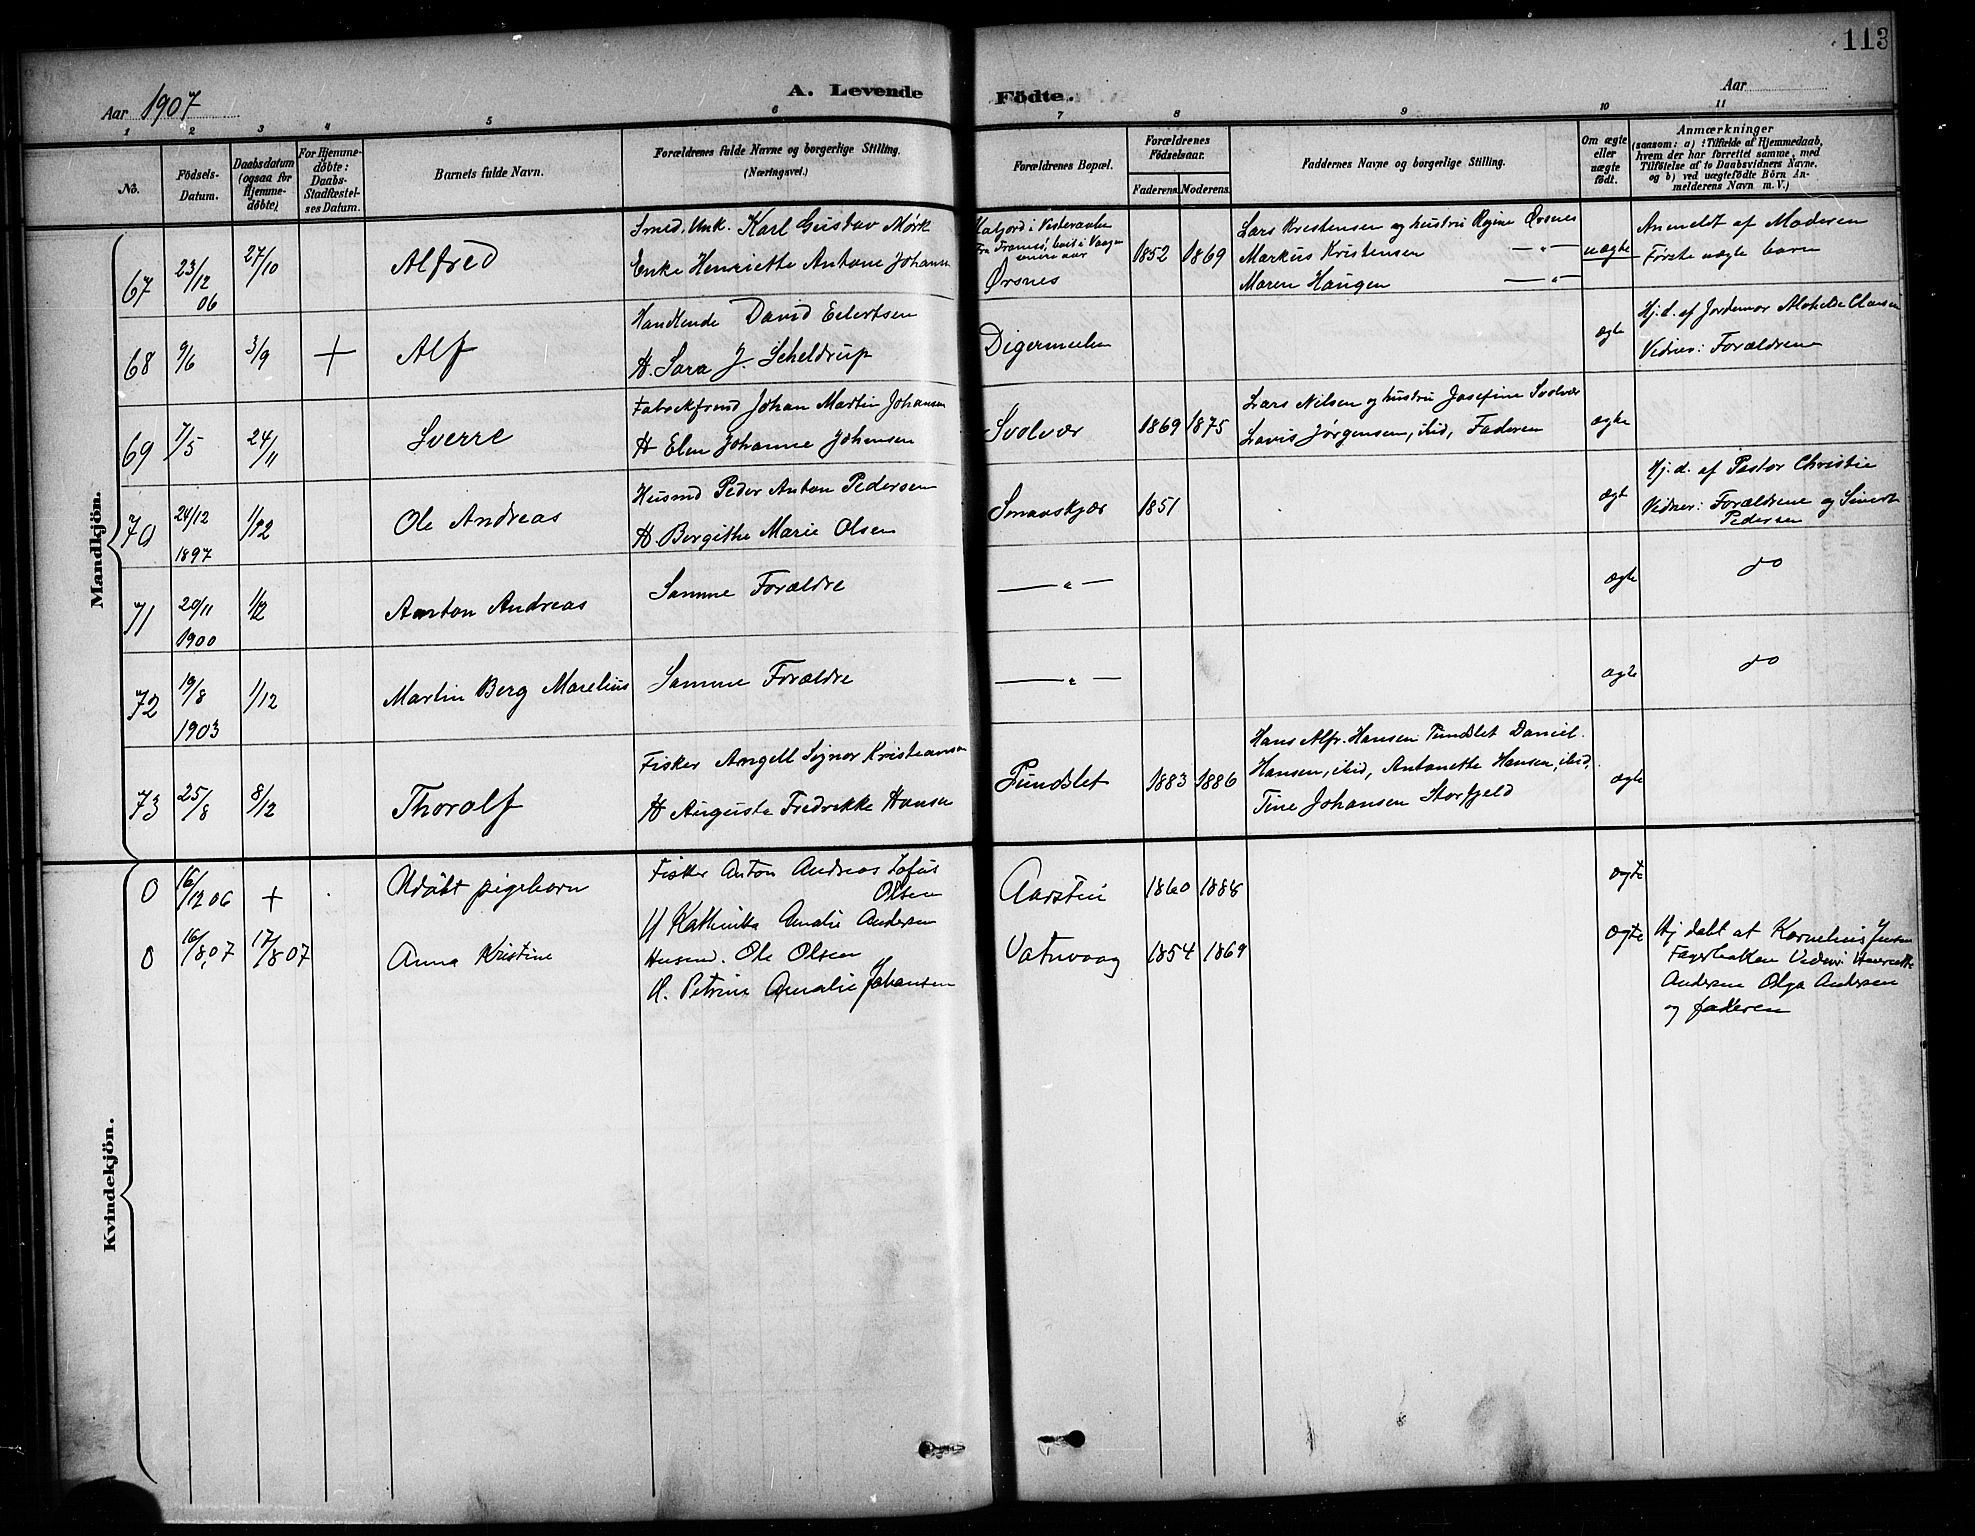 113
Aar 1907
A. Levende Födte.
Aar
1 2 3 4 5 6 7 8 9 10 11
No.
Födsels-
Datum.
Daabsdatum
(ogsaa for
Hjemme-
döbte).
For Hjemme-
döbte:
Daabs-
Stadfæstel-
ses Datum.
Barnets fulde Navn.
Forældrenes fulde Navne og borgerlige Stilling.
(Næringsvei.)
Forældrenes Bopæl.
Forældrenes
Födselsaar.
Faderens. Moderens.
Faddernes Navne og borgerlige Stilling.
Om ægte
eller
uægte
födt.
Anmærkninger
(saasom: a) i Tilfælde af Hjemmedaab,
hvem der har forrettet samme, med
Tilföielse af to Daabsvidners Navne.
og b) ved uægtefödte Börn An-
melderens Navn m. V.)
Mandkjön.
67 23/12 06 27/10 Alfred
Smed, Unk. Karl Gustav Mørk
Enke Henriette Antone Johann
Ørsnes
1852 1869
Lars Kristensen og hustru Regine Ørsnes
Markus Kristensen — " —
Maren Haugen — " —
uægte
Anmeldt af Moderen
Første uægte barn
68 9/6 3/9 + Alf
Handlende David Eilertsen
H. Sara J. Scheldrup
Digermulen
ægte
Hj.d. af Jordemor Clausen
Vidner: Forældrene
69 7/5 24/11 Sverre
Johan Martin Johansen
H Elen Johanne Johansen
Svolvær
1869 1875
Lars Nilsen og hustru Josefine Svolvær
Lovis Jørgensen, ibid, Faderen
ægte
70 24/12 1897 1/12 Ole Andreas
Husmd Peder Anton Pedersen
H. Bergithe Marie Olsen
Smaaskjær
1851
ægt
Hj.d. af Pastor Christie
Vidner: Forældrene og Sivert
Pedersen
71 20/11 1900 1/12 Anton Andreas
Samme Forældre
— " —
ægte
do
72 19/8 1903 1/12 Martin Berg Marelius
Samme Forældre
— " —
ægte
do
73 25/8 8/12 Thoralf
Fisker Angell Signor Kristiansen
H Augusta Fredrikke Hansen
Pundslet
1883 1886
Hans Alfr. Hansen Pundslet Daniel
Hansen, ibid, Antonette Hansen, ibid,
Tine Johansen Storfjeld
ægte
Kvindekjön.
0 16/12 06 + Udöbt pigebarn
Fisker Anton Andreas Lofus
Olsen
H Kathinka Amalie Andersen
Aarstein
1860 1888
ægte
0 16/8 07 17/8 07 Anna Kristine
Husmd. Ole Olsen
H. Petrine Amalie Johansen
Vatnvaag
1854 1869
ægte
Hj døbt af Kornelius Jensen
Fagerbakken Vidner
Andersen Olga Andersen
og faderen